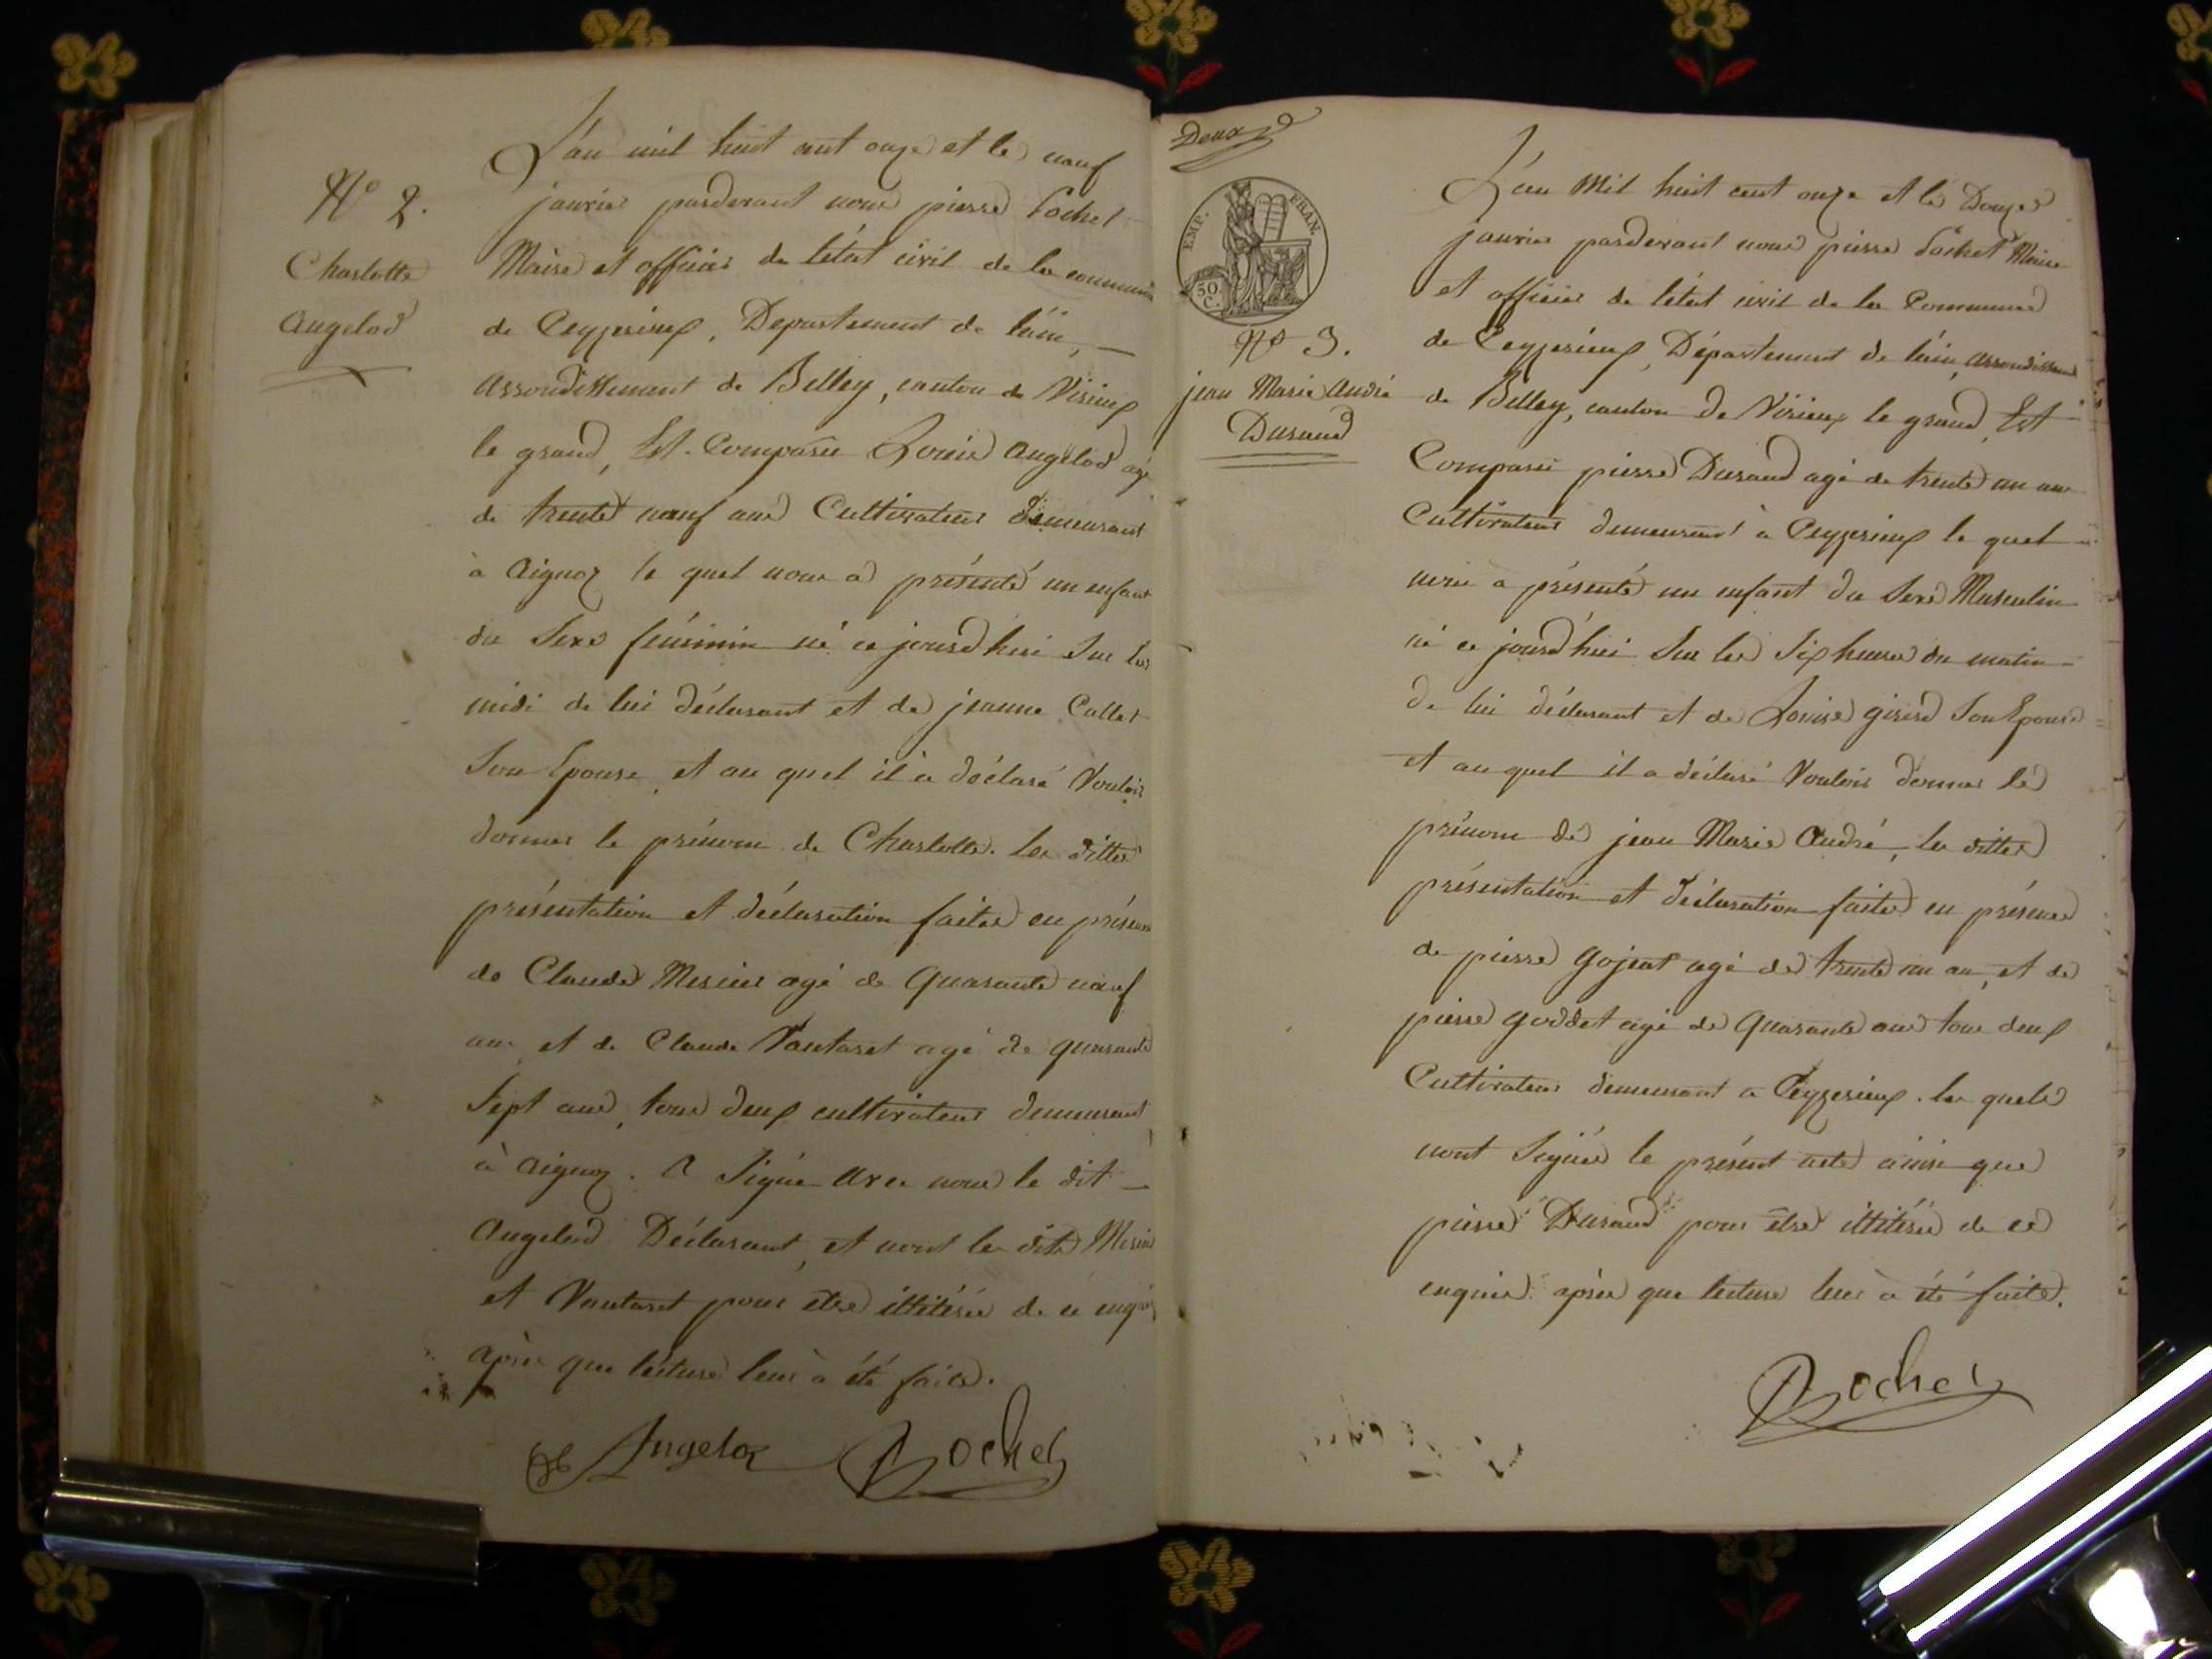 N° 2.
Charlotte
Angelod
L'an mil huit cent onze et le neuf
janvier pardevant nous pierre Rochet
Maire et officier de létat civil de la commune
de Ceyzerieux, Departement de lain,
arrondissement de Belley, canton de Virieux
le grand, Est Comparu Louis Angelod agé
de trente neuf ans Cultivateur demeurant
à Aignoz le quel nous a présenté un enfant
du Sexe féminin né ce jourd'hui Sur les
midi de lui déclarant et de jeanne Collet
Son Epouse, et au quel il à déclaré Vouloir
donner le prénom de Charlotte. les dittes
présentation et déclaration faites en présence
de Claude Mercier agé de Quarante neuf
ans et de Claude Vantaret agé de quarante
Sept ans, tous deux cultivateurs demeurant
à Aignoz. A Signé avec nous le dit
Angelod Déclarant, et nont les dits Mercier
et Vantaret pour être illitérés de ce enquis
après que lécture leur à été faite.
Angeloz Rochet
Deux
EMP. FRAN.
50 C.
N° 3.
jean Marie André
Durand
L'an Mil huit cent onze et le Douze
janvier pardevant nous pierre Rochet Maire
et officier de létat civil de la Commune
de Ceyzerieux, Département de lain, arrondissement
de Belley, canton de Virieux le grand, Est
Comparu pierre Durand agé de trente un ans
Cultivateur demeurant à Ceyzerieux le quel
nous a présenté un enfant du Sexe Masculin
né ce jourd'hui Sur les Six heures du matin
de lui déclarant et de Louise girerd Son Epouse
et au quel il a déclaré Vouloir donner les
prénom de jean Marie André, les dittes
présentation et déclaration faites en présence
de pierre gojent agé de trente un an, et de
pierre goddet agé de Quarante ans tous deux
Cultivateurs demeurant a Ceyzerieux. les quels
nont Signés le présent acte ainsi que
pierre Durand pour être illitérés de ce
enquis après que lecture leur à été faite.
Rochet